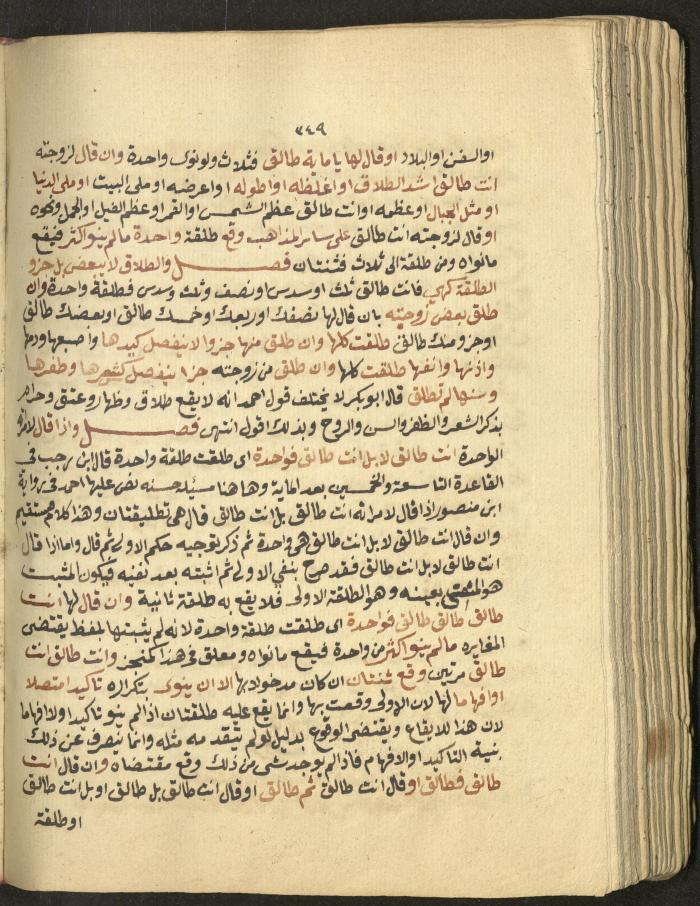 ٣٤٩
او السفن او البلاد او قال لها يا ماية طالق فثلاث ولو نوى واحدة وان قال لزوجته
انت طالق اشد الطلاق او اغلظه او اطوله او اعرضه او ملى البيت او ملى الدنيا
او مثل الجبال او عظمه او انت طالق عظم الشمس او القمر او عظم الفيل او الجمل ونحوه
او قال لزوجته انت طالق على ساير المذاهب وقع طلقة واحدة ما لم ينو اكثر فيقع
ما نواه ومن طلقة الى ثلاث فثنتان فصل والطلاق لا يتبعض بل جزو
الطلقة كهي فانت طالق ثلث او سدس او نصف وثلث وسدس فطلقة واحدة وان
طلق بعض زوجته بان قال لها نصفك او ربعك او خمسك طالق او بعضك طالق
او جزو منك طالق طلقت كلها وان طلق منها جزوا لا ينفصل كيدها واصبعها ودمها
واذنها وانفها طلقت كلها وان طلق من زوجته جزا ينفصل كشعرها وظفرها
وسنها لم تطلق قال ابو بكر لا يختلف قول احمد انه لا يقع طلاق وظهار وعتق وحرام
بذكر الشعر والظفر والسن والروح وبذلك اقول انتهى فصل واذا قال لامراته
الواحدة انت طالق لا بل انت طالق فواحدة اى طلقت طلقة واحدة قال ابن رجب في
القاعدة التاسعة والخمسين بعد الماية وهاهنا مسيلة حسنه نص عليها احمد في رواية
ابن منصور اذا قال لامراته انت طالق بل انت طالق قال هي تطليقتان وهذا كلام مستقيم
وان قال انت طالق لا بل انت طالق هي واحدة ثم ذكر توجيه حكم الاولى ثم قال واما اذا قال
انت طالق لا بل انت طالق فقد صرح بنفي الاولى ثم اثبته بعد نفيه فيكون المثبت
هو المنفي بعينه وهو الطلقة الاولى فلا يقع به طلقة ثانية وان قال لها انت
طالق طالق طالق فواحدة اى طلقت طلقة واحدة لانه لم يثبتها بلفظ يقتضى
المغايره ما لم ينو اكثر من واحدة فيقع ما نواه ومعلق في هذا كمنجز وانت طالق انت
طالق مرتين وقع ثنتان ان كان مدخولا بها الا ان ينوى بتكراره تاكيدا متصلا
او افهاما لها لان الاولى وقعت بها وانما يقع عليه طلقتان اذا لم ينو تاكيدا ولا افهاما
لان هذا للايقاع ويقتضى الوقوع بدليل لو لم يتقدمه مثله وانما ينصرف عن ذلك
بنية التاكيد او الافهام فاذا لم يوجد شى من ذلك وقع مقتضاه وان قال انت
طالق فطالق او قال انت طالق ثم طالق او قال انت طالق بل طالق او بل انت طالق
او طلقة